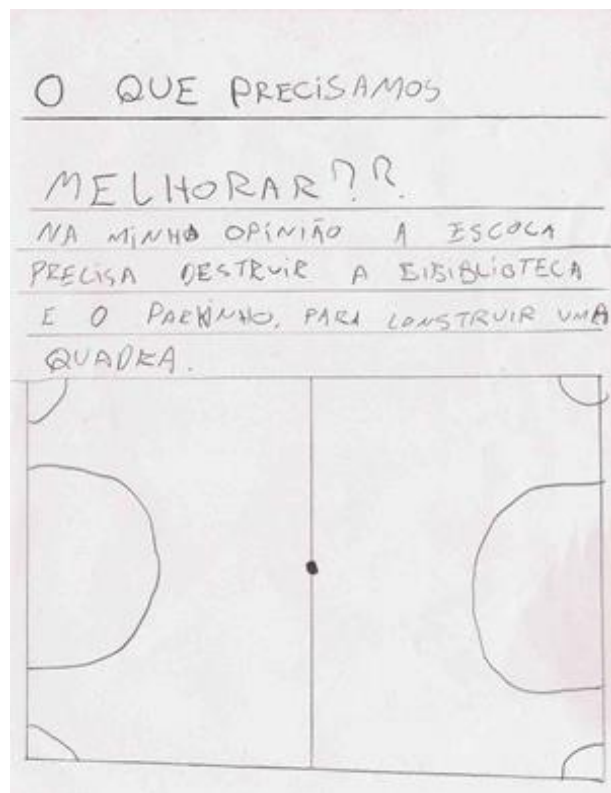 O QUE PRECISAMOS
MELHORAR??
NA MINHA OPINIÃO A ESCOLA
PRECISA DESTRUIR A BIBIBLIOTECA
E O PARKINHO, PARA CONSTRUIR UMA
QUADRA.